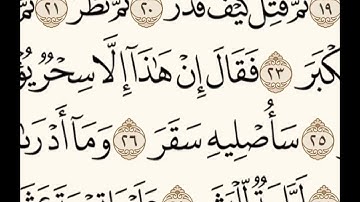 ١٩ ثُمَّ قُتِلَ كَيْفَ قَدَّرَ ٢٠ ثُمَّ نَظَرَ ٢١ ثُمَّ
كْبَرَ ٢٣ فَقَالَ إِنْ هَٰذَآ إِلَّا سِحْرٌ يُؤْ
٢٥ سَأُصْلِيهِ سَقَرَ ٢٦ وَمَآ أَدْرَىٰ